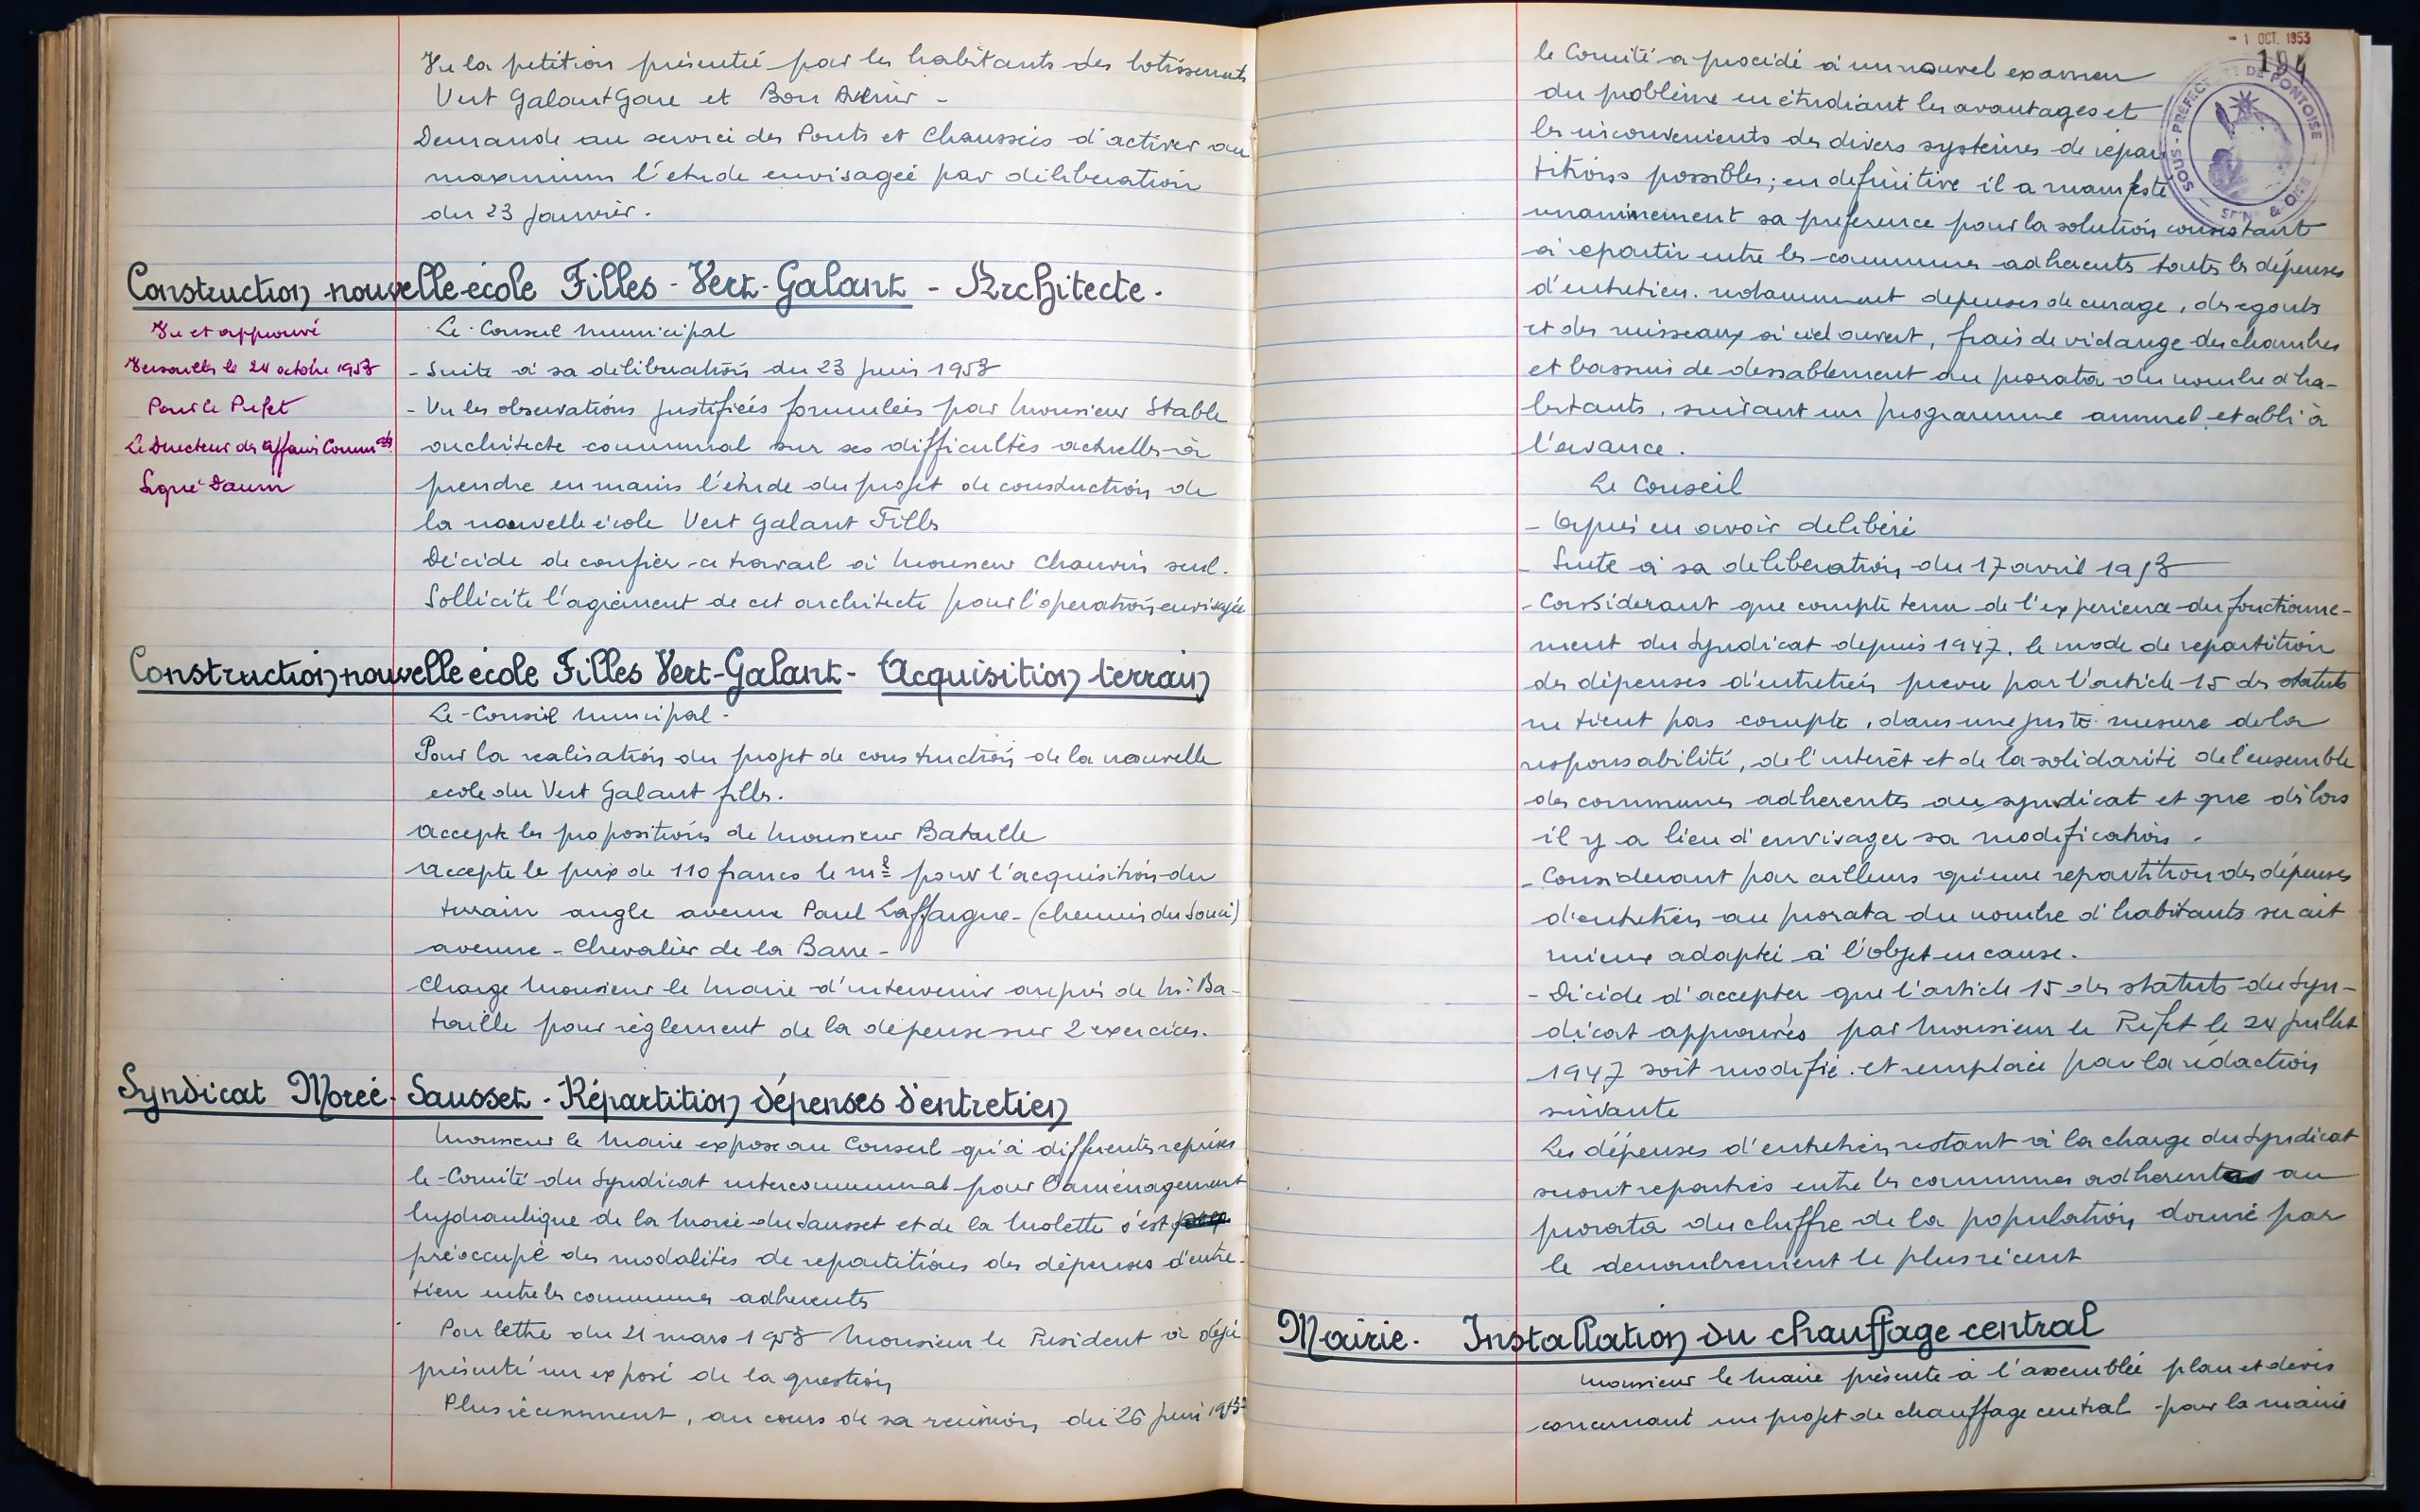 Vu la petition présentée par les habitants des lotissements
Vert Galant Gare et Bon Avenir -
Demande au service des Ponts et Chaussées d'activer au
maximum l'etude envisagée par déliberation
du 23 Janvier.
Construction nouvelle école Filles - Vert-Galant - Architecte.
Vu et approuvé
Versailles le 24 octobre 1953
Pour le Préfet
Le Directeur des Affaires Commles
Signé Daum
Le Conseil Municipal
- Suite à sa déliberation du 23 Juin 1953
- Vu les observations justifiées formulées par Monsieur Stable
architecte communal sur ses difficultés actuelles à
prendre en mains l'étude du projet de construction de
la nouvelle école Vert Galant Filles
Décide de confier ce travail à Monsieur Chauvin seul.
Sollicite l'agrément de cet architecte pour l'opération envisagée
Construction nouvelle école Filles Vert-Galant - Acquisition terrain
Le Conseil Municipal -
Pour la realisation du projet de construction de la nouvelle
ecole du Vert Galant filles.
Accepte les propositions de Monsieur Bataille
Accepte le prix de 110 francs le m2 pour l'acquisition du
terrain angle avenue Paul Laffargue - (chemin du Souci)
avenue - Chevalier de la Barre -
Charge Monsieur le Maire d'intervenir auprès de Mr Ba-
taille pour règlement de la dépense sur 2 exercices.
Syndicat Morée-Sausset - Répartition dépenses d'entretien
Monsieur le Maire expose au Conseil qu'à differentes reprises
le Comité du Syndicat intercommunal pour l'aménagement
hydraulique de la Morée du Sausset et de la Molette s'est
préoccupé des modalités de repartitions des dépenses d'entre-
tien entre les communes adherentes
Par lettre du 21 mars 1953 Monsieur le President a déjà
présenté un exposé de la question
Plus récemment, au cours de sa reunion du 26 Juin 1953
- 1 OCT. 1953
194
SOUS-PRÉFECTURE DE PONTOISE
SEINE & OISE
le Comité a procédé à un nouvel examen
du problème en étudiant les avantages et
les inconvenients des divers systèmes de répar
titions possibles; en definitive il a manifesté
unanimement sa preference pour la solution consistant
à repartir entre les communes adherentes toutes les dépenses
d'entretien. notamment depenses de curage, des egouts
et des ruisseaux à ciel ouvert, frais de vidange des chambres
et bassins de dessablement au prorata du nombre d'ha-
bitants, suivant un programme annuel etabli à
l'avance.
Le Conseil
- Après en avoir deliberé
- Suite à sa deliberation du 17 avril 1953
- Considerant que compte tenu de l'experience du fonctionne-
ment du Syndicat depuis 1947, le mode de repartition
des dépenses d'entretien prevu par l'article 15 des statuts
ne tient pas compte, dans une juste mesure de la
responsabilité, de l'interêt et de la solidarité de l'ensemble
des communes adherentes au syndicat et que dès lors
il y a lieu d'envisager sa modification.
- Considerant par ailleurs qu'une repartition des dépenses
d'entretien au prorata du nombre d'habitants serait
mieux adaptée à l'objet en cause.
- Décide d'accepter que l'article 15 des statuts du Syn-
dicat approuvés par Monsieur le Préfet le 24 Juillet
1947 soit modifié et remplacé par la rédaction
suivante
Les dépenses d'entretien restant à la charge du Syndicat
seront reparties entre les communes adherentes au
prorata du chiffre de la population donné par
le denombrement le plus récent
Mairie. Installation du chauffage central
Monsieur le Maire présente à l'assemblée plan et devis
concernant un projet de chauffage central pour la mairie